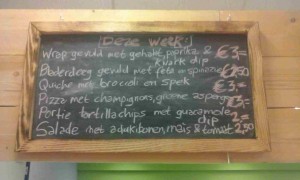 Deze week:)
Wrap gevuld met gehakt, paprika & €3,=
kwark dip
Bladerdeeg gevuld met feta en spinazie €2,50
Quiche met broccoli en spek €3,=
Pizza met champignons, groene asperges €3,=
Portie tortillachips met guacamole €2,=
dip
Salade met adukibonen, mais & tomaat 2,50